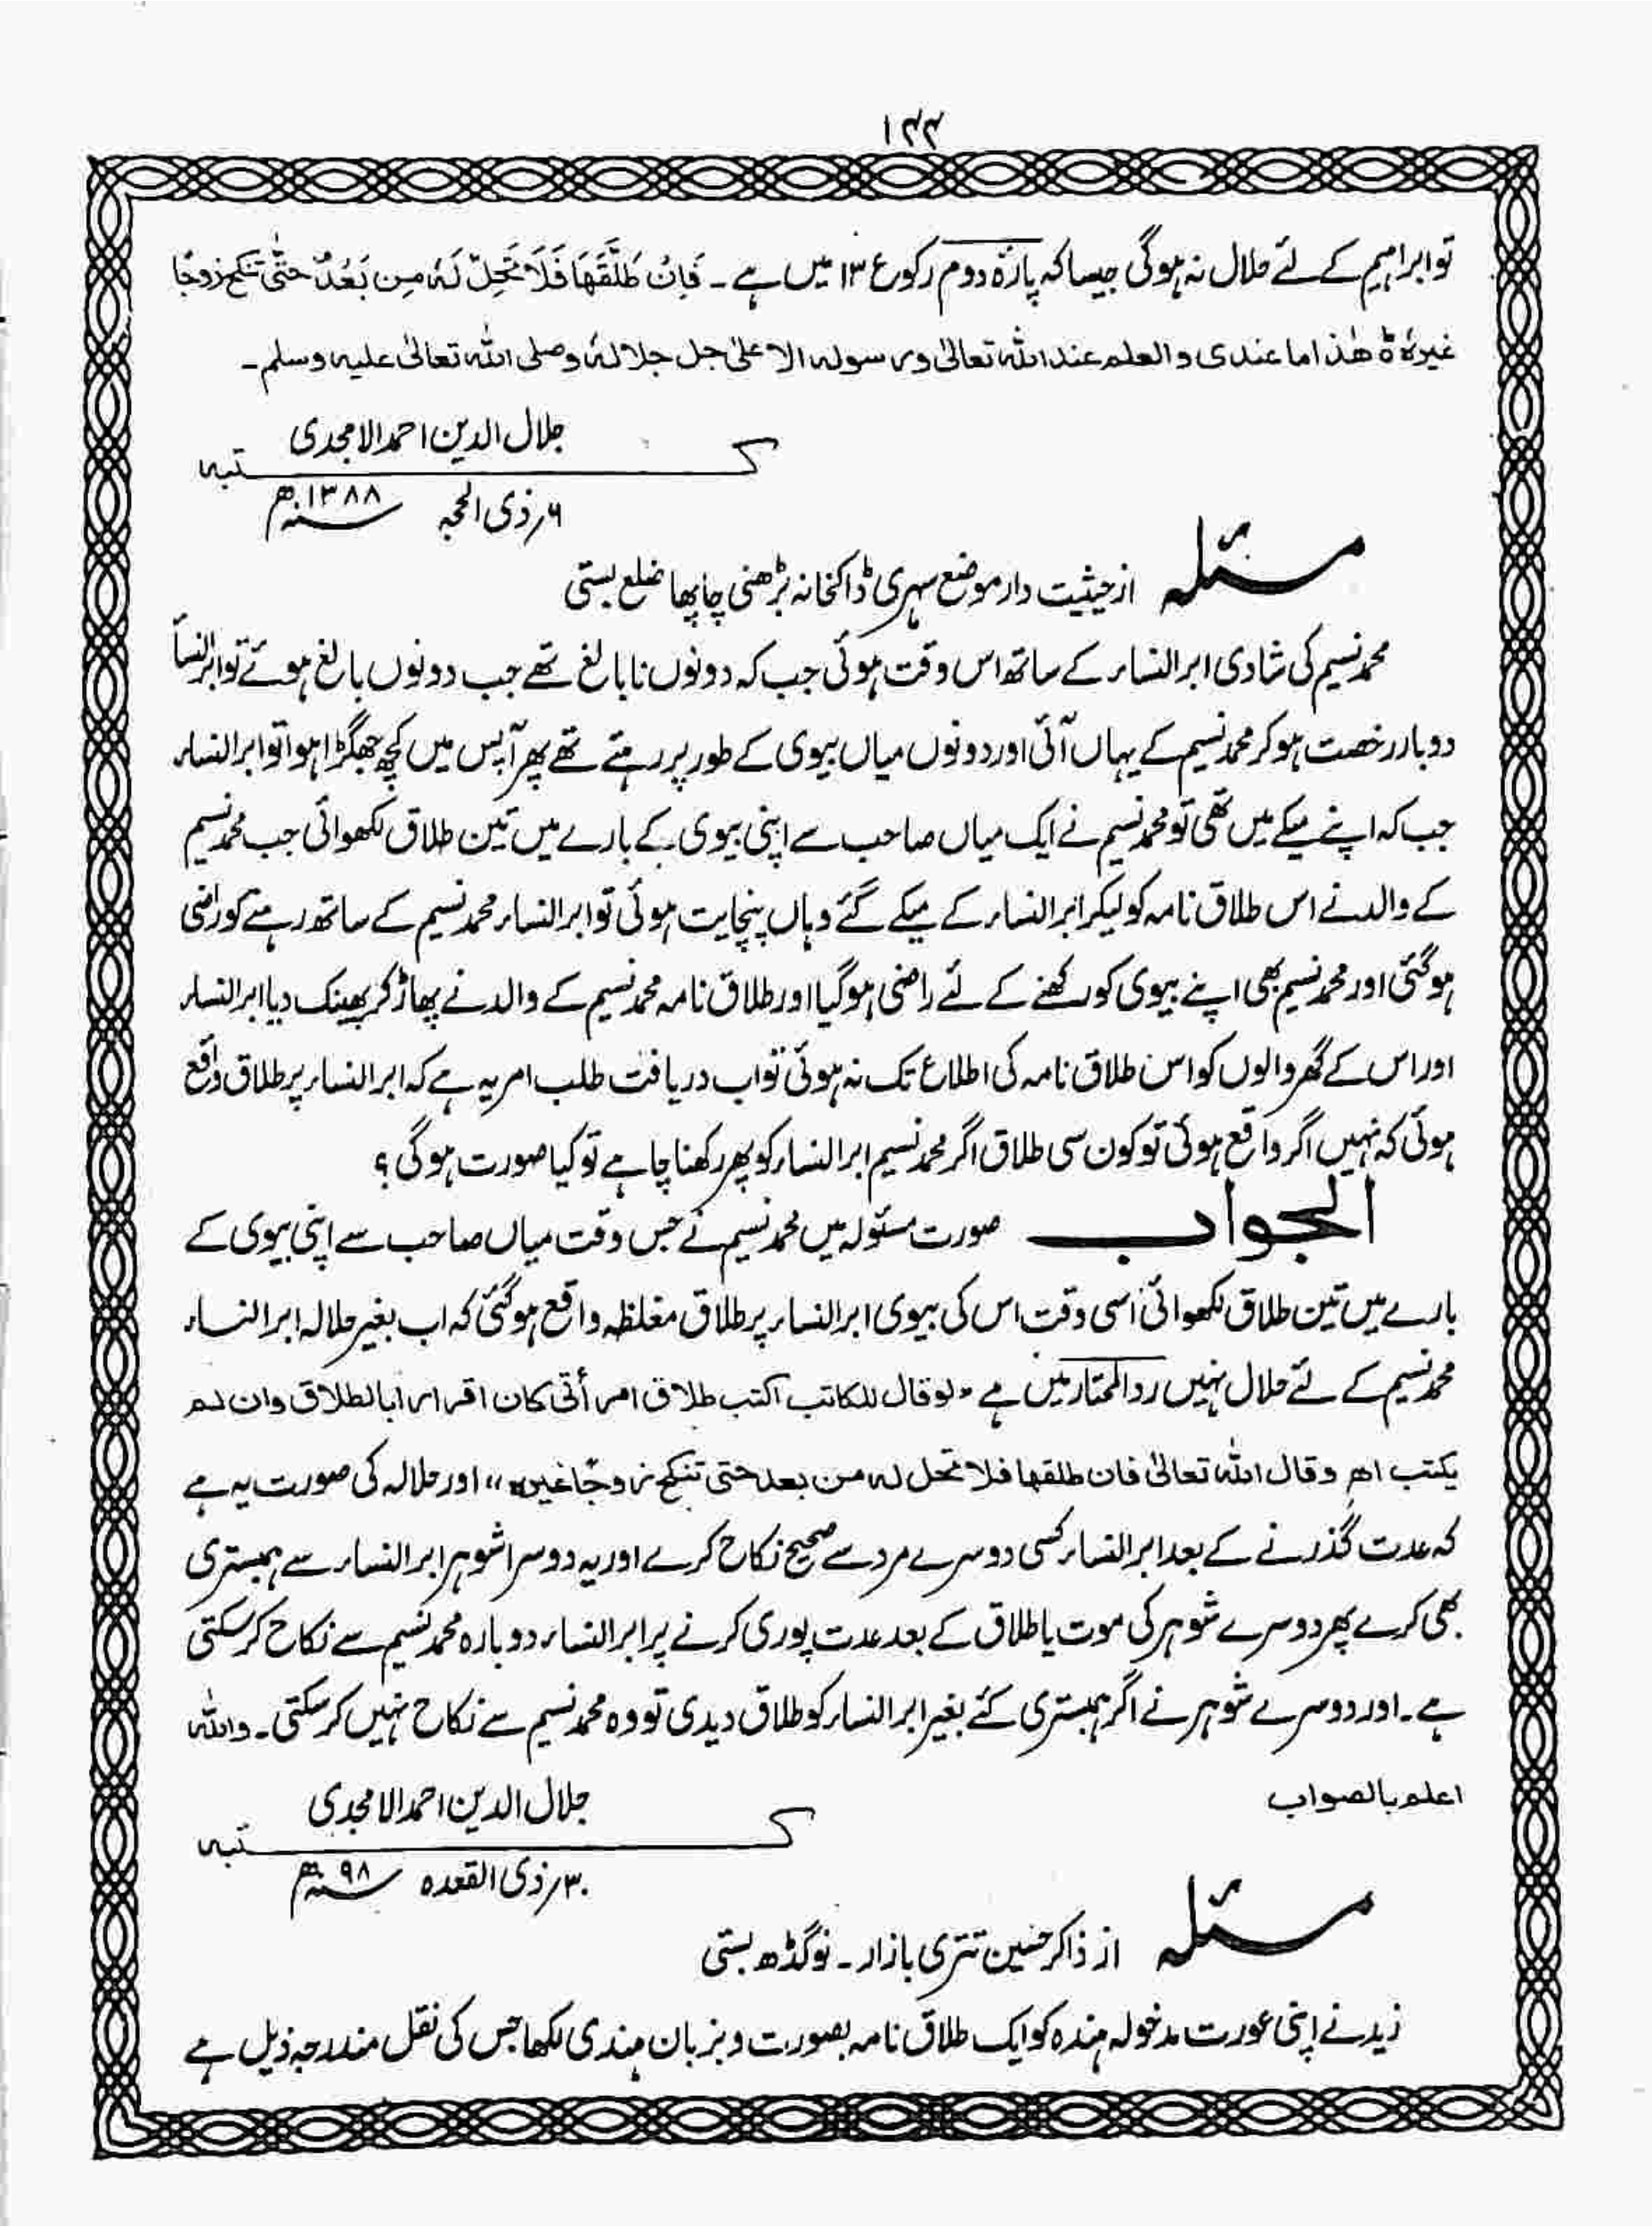 ۱۲۲
تو ابراہیم کے لئے حلال نہ ہوگی جیسا کہ پارہ دوم رکوع ۱۳ میں ہے ۔ فَاِنْ طَلَّقَهَا فَلَا تَحِلُّ لَهٗ مِن بَعْدُ حَتّٰى تَنْكِحَ زَوجًا
غیرَہٗ ط ھٰذا ما عندی والعلم عند اللہ تعالیٰ ورسولہ الاعلیٰ جل جلالہٗ وصلی اللہ تعالیٰ علیہ وسلم ۔
جلال الدین احمد الامجدی
کتبہ
۶؍ ذی الحجہ ۱۳۸۸ھ
مسئلہ از حیثیت دار موضع سہری ڈاکخانہ بڑھنی چاپھا ضلع بستی
محمد نسیم کی شادی ابرالنساء کے ساتھ اس وقت ہوئی جب کہ دونوں نابالغ تھے جب دونوں بالغ ہوئے تو ابرالنسأ
دو بار رخصت ہو کر محمد نسیم کے یہاں آئی اور دونوں میاں بیوی کے طور پر رہتے تھے پھر آپس میں کچھ جھگڑا ہوا تو ابرالنساء
جب کہ اپنے میکے میں تھی تو محمد نسیم نے ایک میاں صاحب سے اپنی بیوی کے بارے میں تین طلاق لکھوائی جب محمد نسیم
کے والد نے اس طلاق نامہ کو لیکر ابرالنساء کے میکے گئے وہاں پنچایت ہوئی تو ابرالنساء محمد نسیم کے ساتھ رہنے کو راضی
ہو گئی اور محمد نسیم بھی اپنے بیوی کو رکھنے کے لئے راضی ہو گیا اور طلاق نامہ محمد نسیم کے والد نے پھاڑ کر پھینک دیا ابرالنساء
اور اس کے گھر والوں کو اس طلاق نامہ کی اطلاع تک نہ ہوئی تو اب دریافت طلب امر یہ ہے کہ ابرالنساء پر طلاق واقع
ہوئی کہ نہیں اگر واقع ہوئی تو کون سی طلاق اگر محمد نسیم ابرالنساء کو پھر رکھنا چاہے تو کیا صورت ہوگی ؟
الجواب صورت مسئولہ میں محمد نسیم نے جس وقت میاں صاحب سے اپنی بیوی کے
بارے میں تین طلاق لکھوائی اسی وقت اس کی بیوی ابرالنساء پر طلاق مغلظہ واقع ہو گئی کہ اب بغیر حلالہ ابرالنساء
محمد نسیم کے لئے حلال نہیں ردالمحتار میں ہے ،، لو قال للکاتب اکتب طلاق امرأتی کان اقرارا بالطلاق وان لم
یکتب اھ وقال اللہ تعالیٰ فان طلقھا فلا تحل لہ من بعد حتی تنکح زوجًا غیرہ ،، اور حلالہ کی صورت یہ ہے
کہ عدت گذرنے کے بعد ابرالنساء کسی دوسرے مرد سے صحیح نکاح کرے اور یہ دوسرا شوہر ابرالنساء سے ہمبستری
بھی کرے پھر دوسرے شوہر کی موت یا طلاق کے بعد عدت پوری کرنے پر ابرالنساء دوبارہ محمد نسیم سے نکاح کر سکتی
ہے ۔ اور دوسرے شوہر نے اگر ہمبستری کئے بغیر ابرالنساء کو طلاق دیدی تو وہ محمد نسیم سے نکاح نہیں کر سکتی ۔ واللہ
اعلم بالصواب
جلال الدین احمد الامجدی
کتبہ
۳۰؍ ذی القعدہ ۹۸ھ
مسئلہ از ذاکر حسین تتری بازار ۔ نوگڈھ بستی
زید نے اپنی عورت مدخولہ ہندہ کو ایک طلاق نامہ بصورت و بزبان ہندی لکھا جس کی نقل مندرجہ ذیل ہے